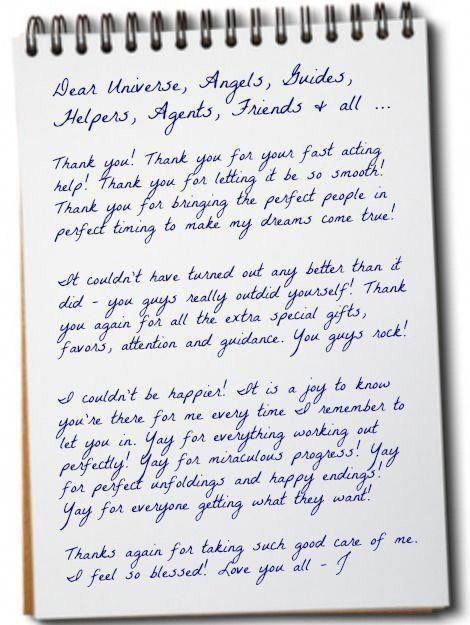 Dear Universe, Angels, Guides,
Helpers, Agents, Friends & all ...
Thank you! Thank you for your fast acting
help! Thank you for letting it be so smooth!
Thank you for bringing the perfect people in
perfect timing to make my dreams come true!
It couldn't have turned out any better than it
did - you guys really outdid yourself! Thank
you again for all the extra special gifts,
favors, attention and guidance. You guys rock!
I couldn't be happier! It is a joy to know
you're there for me every time I remember to
let you in. Yay for everything working out
perfectly! Yay for miraculous progress! Yay
for perfect unfoldings and happy endings!
Yay for everyone getting what they want!
Thanks again for taking such good care of me.
I feel so blessed! Love you all - J